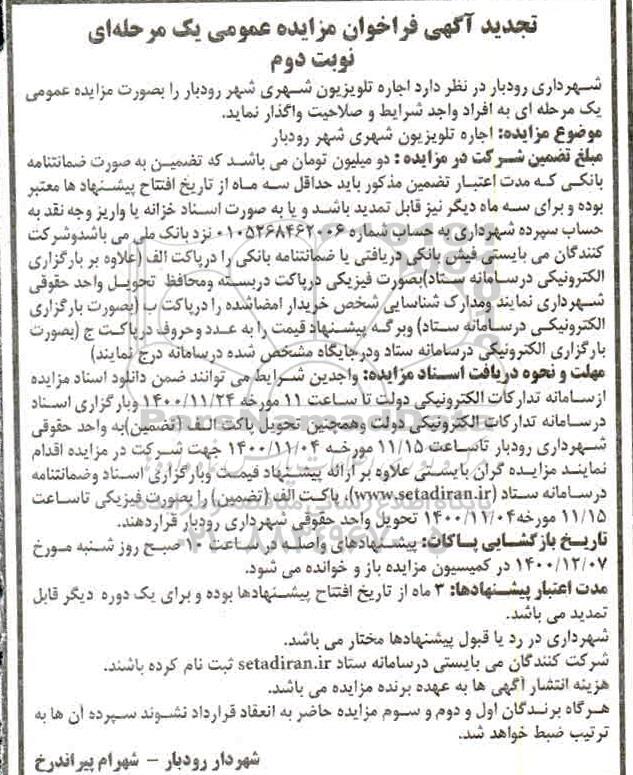 تجدید آگهی فراخوان مزایده عمومی یک مرحله‌ای
نوبت دوم
شهرداری رودبار در نظر دارد اجاره تلویزیون شهری شهر رودبار را بصورت مزایده عمومی
یک مرحله ای به افراد واجد شرایط و صلاحیت واگذار نماید.
موضوع مزایده: اجاره تلویزیون شهری شهر رودبار
مبلغ تضمین شرکت در مزایده : دو میلیون تومان می باشد که تضمین به صورت ضمانتنامه
بانکی که مدت اعتبار تضمین مذکور باید حداقل سه ماه از تاریخ افتتاح پیشنهاد ها معتبر
بوده و برای سه ماه دیگر نیز قابل تمدید باشد و یا به صورت اسناد خزانه یا واریز وجه نقد به
حساب سپرده شهرداری به حساب شماره ۰۱۰۵۲۶۸۴۶۲۰۰۶ نزد بانک ملی می باشدوشرکت
کنندگان می بایستی فیش بانکی دریافتی یا ضمانتنامه بانکی را درپاکت الف (علاوه بر بارگزاری
الکترونیکی درسامانه ستاد)بصورت فیزیکی درپاکت دربسته ومحافظ تحویل واحد حقوقی
شهرداری نمایند ومدارک شناسایی شخص خریدار امضاشده را درپاکت ب (بصورت بارگزاری
الکترونیکی درسامانه ستاد) وبرگه پیشنهاد قیمت را به عدد وحروف درپاکت ج (بصورت
بارگزاری الکترونیکی درسامانه ستاد ودرجایگاه مشخص شده درسامانه درج نمایند)
مهلت و نحوه دریافت اسناد مزایده: واجدین شرایط می توانند ضمن دانلود اسناد مزایده
ازسامانه تدارکات الکترونیکی دولت تا ساعت ۱۱ مورخه ۱۴۰۰/۱۱/۲۴ وبارگزاری اسناد
درسامانه تدارکات الکترونیکی دولت وهمچنین تحویل پاکت الف (تضمین)به واحد حقوقی
شهرداری رودبار تاساعت ۱۱/۱۵ مورخه ۱۴۰۰/۱۱/۰۴ جهت شرکت در مزایده اقدام
نمایند مزایده گران بایستی علاوه بر ارائه پیشنهاد قیمت وبارگزاری اسناد وضمانتنامه
درسامانه ستاد (www.setadiran.ir)، پاکت الف (تضمین) را بصورت فیزیکی تاساعت
۱۱/۱۵ مورخه۱۴۰۰/۱۱/۰۴ تحویل واحد حقوقی شهرداری رودبار قراردهند.
تاریخ بازگشایی پاکات: پیشنهادهای واصله در ساعت ۱۰ صبح روز شنبه مورخ
۱۴۰۰/۱۲/۰۷ در کمیسیون مزایده باز و خوانده می شود.
مدت اعتبار پیشنهادها: ۳ ماه از تاریخ افتتاح پیشنهادها بوده و برای یک دوره دیگر قابل
تمدید می باشد.
شهرداری در رد یا قبول پیشنهادها مختار می باشد.
شرکت کنندگان می بایستی درسامانه ستاد setadiran.ir ثبت نام کرده باشند.
هزینه انتشار آگهی ها به عهده برنده مزایده می باشد.
هرگاه برندگان اول و دوم و سوم مزایده حاضر به انعقاد قرارداد نشوند سپرده آن ها به
ترتیب ضبط خواهد شد.
شهردار رودبار – شهرام پیراندرخ